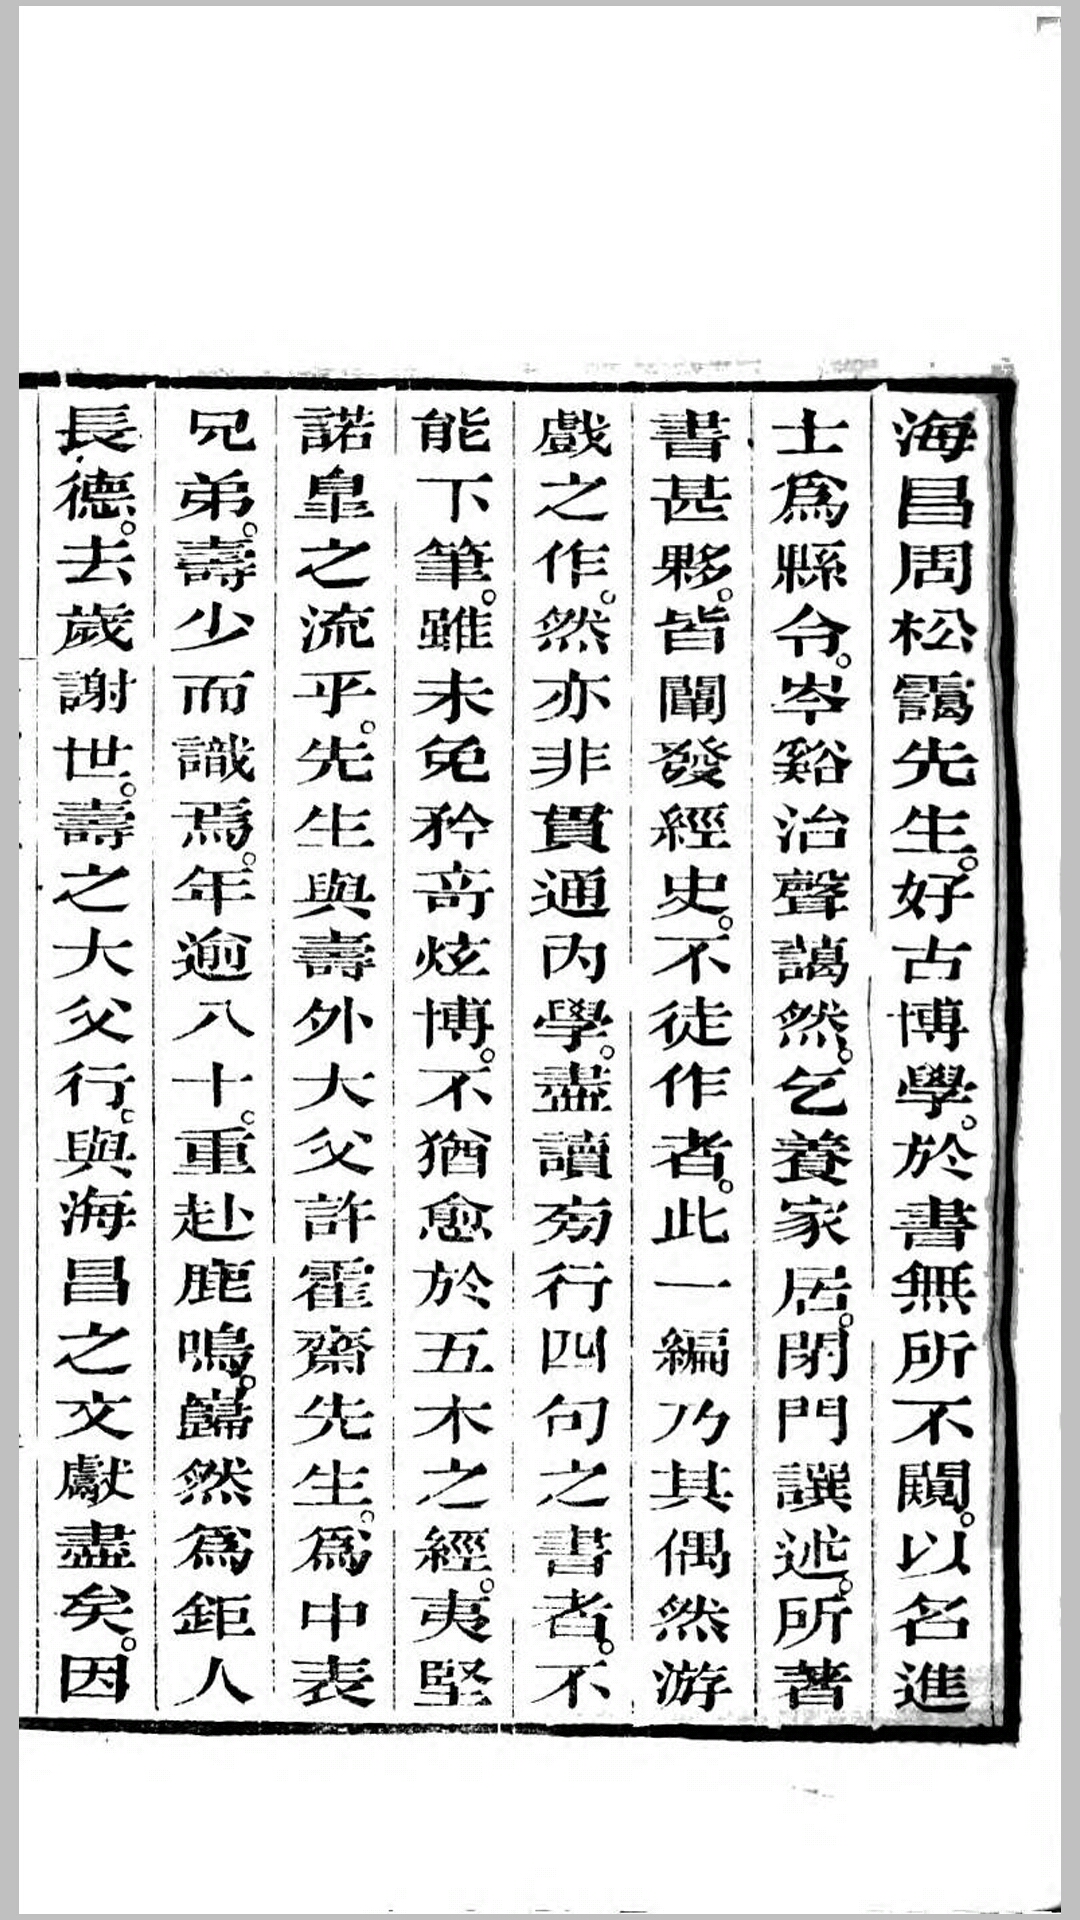 海昌周松靄先生。好古博學。於書無所不闚。以名進
士爲縣令。岑谿治聲藹然。乞養家居。閉門譔述。所著
書甚夥。皆闡發經史。不徒作者。此一編乃其偶然游
戲之作。然亦非貫通內學。盡讀旁行四句之書者。不
能下筆。雖未免矜奇炫博。不猶愈於五木之經。夷堅
諾皋之流乎。先生與壽外大父許霍齋先生。爲中表
兄弟。壽少而識焉。年逾八十。重赴鹿鳴。巋然爲鉅人
長德。去歲謝世。壽之大父行。與海昌之文獻盡矣。因